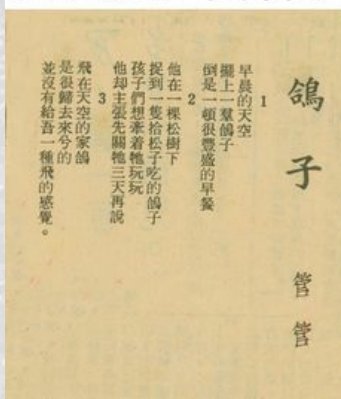 鴿子
管管
1
早晨的天空
擺上一羣鴿子
倒是一頓很豐盛的早餐
2
他在一棵松樹下
捉到一隻拾松子吃的鴿子
孩子們想牽着牠玩玩
他却主張先關牠三天再說
3
飛在天空的家鴿
是很歸去來兮的
並沒有給吾一種飛的感覺。